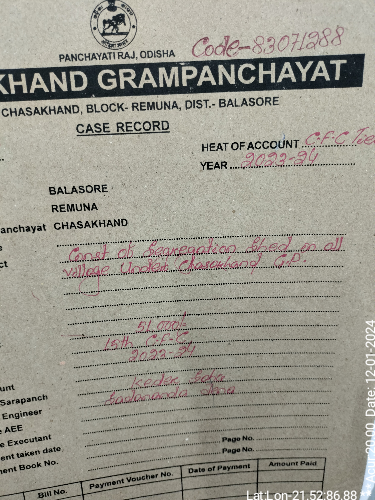 PANCHAYATI RAJ, ODISHA
Code-83071288
KHAND GRAMPANCHAYAT
CHASAKHAND, BLOCK- REMUNA, DIST.- BALASORE
CASE RECORD
HEAT OF ACCOUNT C.F.C
YEAR 2023-24
BALASORE
REMUNA
anchayat CHASAKHAND
Const of Segregation Shed in all
village Under Chasakhand G.P.
15th C.F.C
2023-24
unt
Sarapanch
Engineer
AEE
e Executant
ent taken date Page No.
ent Book No. Page No.
Bill No. Payment Voucher No. Date of Payment Amount Paid
Date: 12-01-2024
Lat Lon-21.52:86.88